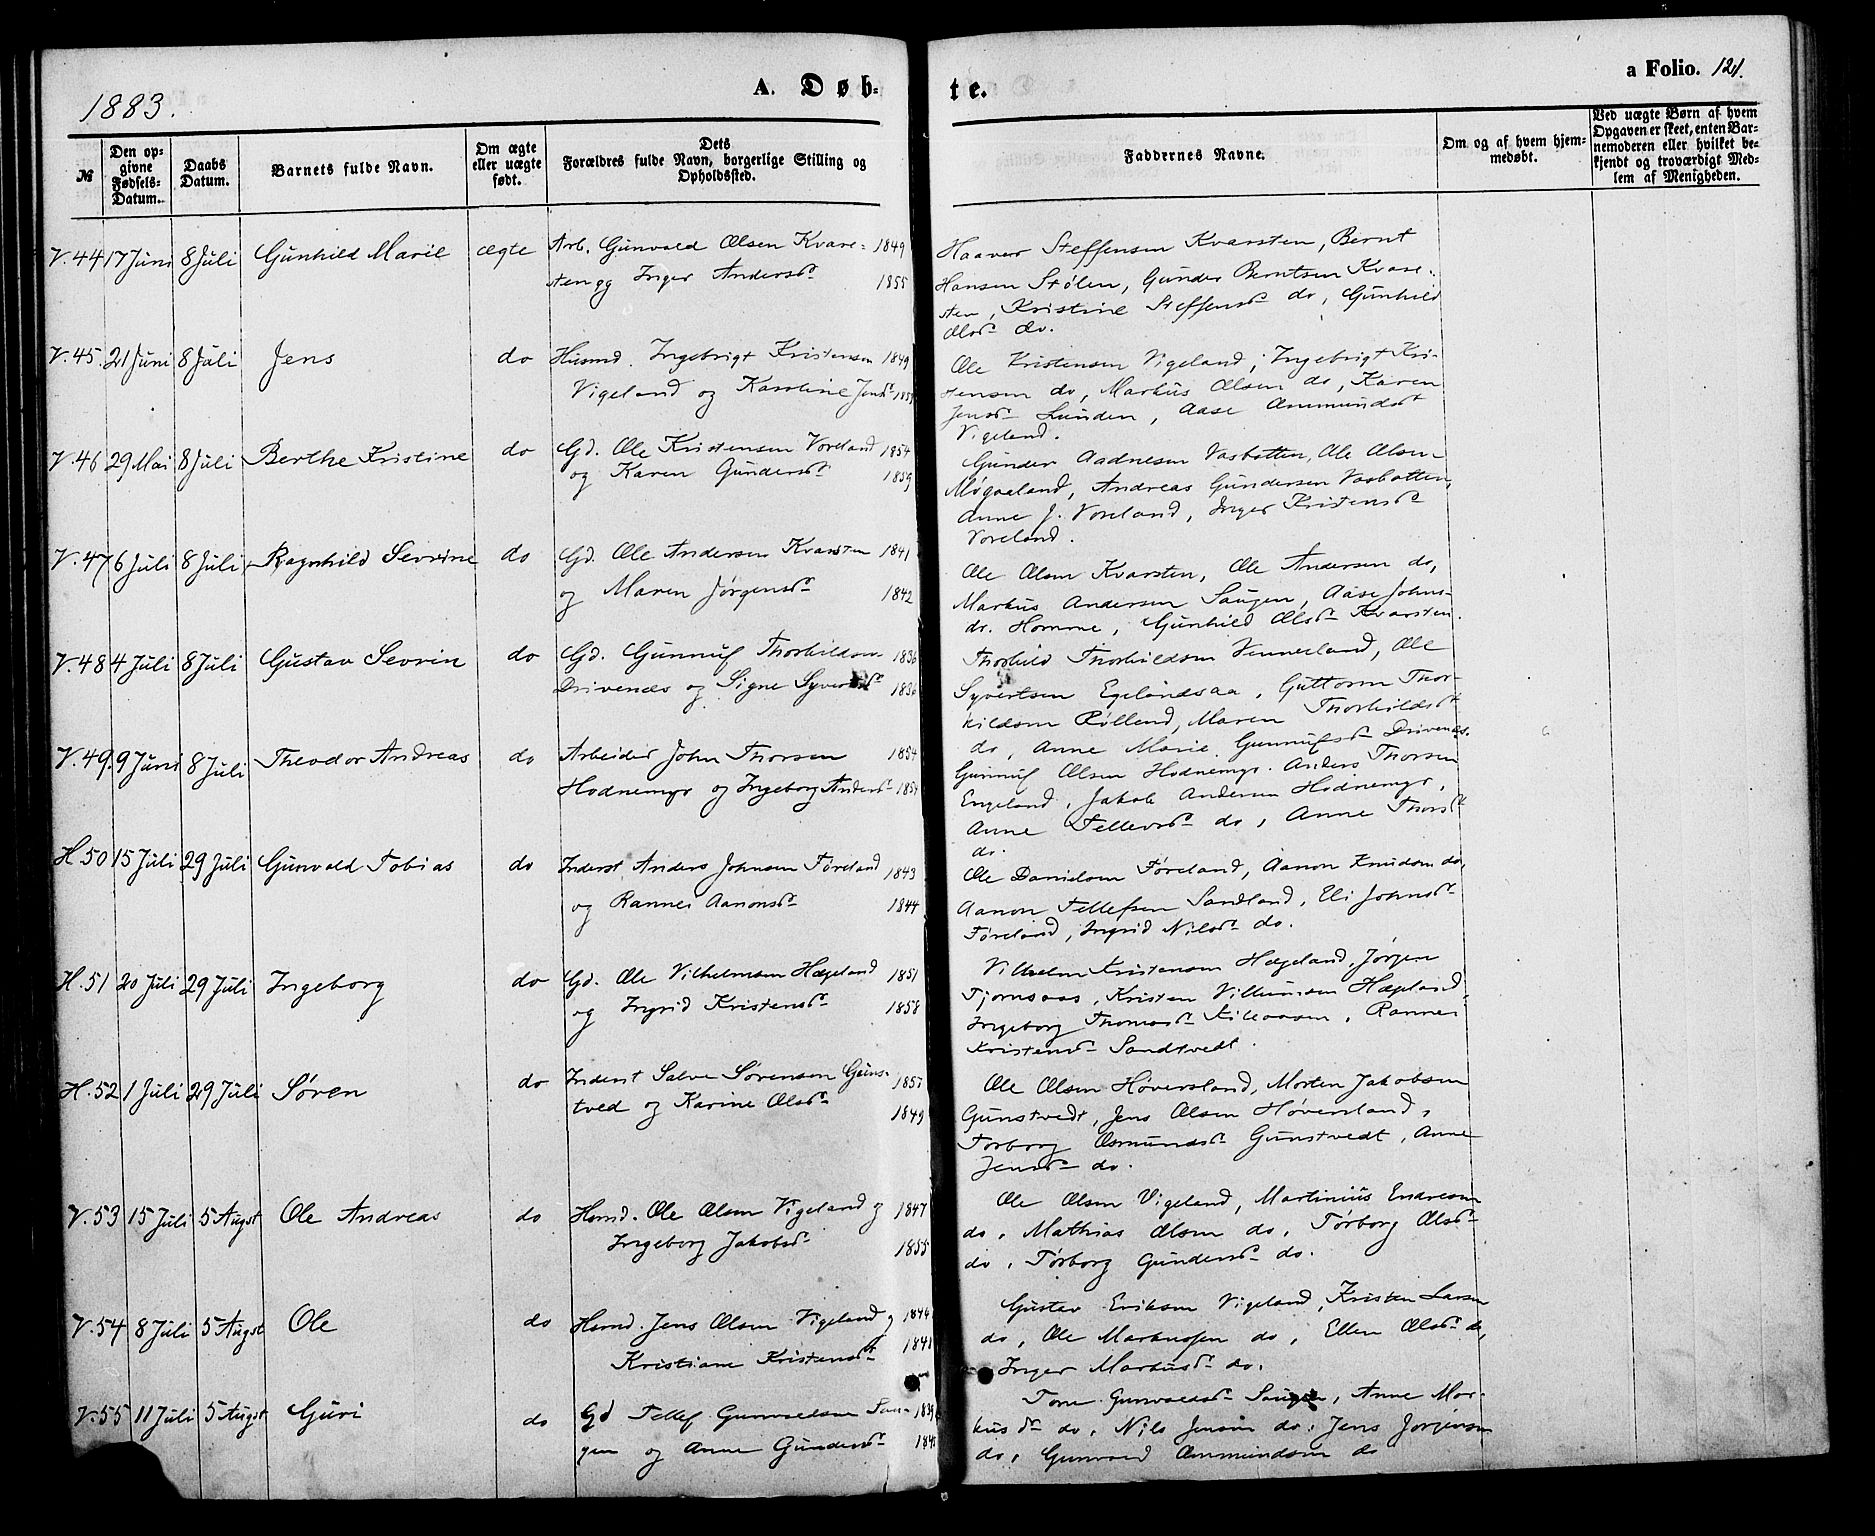 1883.
A. Døb-
te.
a Folio. 121.
№
Den op-
givne
Fødsels-
Datum.
Daabs
Datum.
Barnets fulde Navn.
Om ægte
eller uægte
født.
Dets
Forældres fulde Navn, borgerlige Stilling og
Opholdssted.
Faddernes Navne.
Om og af hvem hjem-
medøbt.
Ved uægte Børn af hvem
Opgaven er skeet, enten Bar-
nemoderen eller hvilket be-
kjendt og troværdigt Med-
lem af Menigheden.
V. 44 17 Juni 8 Juli Gunhild Marie ægte Arb. Gunvald Olsen Kvars= 1849
ten og Inger Andersd 1855
Haaver Steffensen Kvarsten, Bernt
Hansen Stølen, Gunder Berntsen Kvars-
ten, Kristine Steffensd do, Gunhild
Olsd do.
V. 45. 21 Juni 8 Juli Jens do Husmd. Ingebrigt Kristensen 1849
Vigeland og Karoline Jensd
Ole Kristensen Vigeland, Ingebrigt Kri-
stensen do, Markus Olsen do, Karen
Jensd Lunden, Aase Ommundsd
Vigeland.
V. 46 29 Mai 8 Juli Berthe Kristine do Gd. Ole Kristensen Voreland 1854
og Karen Gundersd 1859
Gunder Aadnesen Vasbotten, Ole Olsen
Møgaeland, Andreas Gundersen Vasbotten,
Anne J. Voreland, Inger Kristensd
Voreland.
V. 47 6 Juli 8 Juli Ragnhild Sevrine do Gd. Ole Andersen Kvarsten 1841
og Maren Jørgensd 1842
Ole Olsen Kvarsten, Ole Andersen do,
Markus Andersen Saugen, Aase Johns-
dr. Homme, Gunhild Olsd Kvarsten.
V. 48 4 Juli 8 Juli Gustav Sevrin do Gd. Gunnuf Thorkildsen 1836
Drivenæs og Signe Syvertsd 1836
Thorkild Thorkildsen Vennerland, Ole
Syvertsen Egelandsaa, Guttorm Thor-
kildsen Rølland, Maren Thorkildsd
do, Anne Marie Gunnufsd Drivenæs.
V. 49. 9 Juni 8 Juli Theodor Andreas do Arbeider John Thorsen 1854
Hodnemyr og Ingeborg Andersd
Gunnuf Olsen Hodnemyr. Anders Thorsen
Engeland, Jakob Andersen Hodnemyr,
Anne Tellevsd do, Anne Thorsd
do.
H. 50 15 Juli 29 Juli Gunvald Tobias do Inderst Anders Johnsen Føreland 1843
og Rannei Aanonsd 1844
Ole Danielsen Føreland, Aanon Knudsen do,
Aanon Tellefsen Sandland, Eli Johnsd
Føreland, Ingrid Nilsd do.
H. 51 20 Juli 29 Juli Ingeborg do Gd. Ole Vilhelmsen Hægeland 1851
og Ingrid Kristensd 1858
Vilhelm Kristensen Hægeland, Jørgen
Tjomsaas, Kristen Villumsen Hægeland,
Ingeborg Thomasd Kileaasen, Rannei
Kristensd Sandtvedt.
H. 52 1 Juli 29 Juli Søren do Inderst Salve Sørensen Guns-
tved og Karine Olsd 1849
Ole Olsen Høversland, Morten Jakobsen
Gunstvedt, Jens Olsen Høversland,
Torborg Osmundsd Gunstvedt, Anne
Jensd do.
V. 53 15 Juli 5 Augst Ole Andreas do Husmd. Ole Olsen Vigeland og 1847
Ingeborg Jakobsd 1855
Ole Olsen Vigeland, Martinius Endresen
do, Mathias Olsen do, Tørborg Olsd
do, Tørborg Gundersd do.
V. 54 8 Juli 5 Augst Ole do Husmd. Jens Olsen Vigeland og 1844
Kristiane Kristensd 1841
Gustav Eriksen Vigeland, Kristen Larsen
do, Ole Markussen do, Ellen Olsd do,
Inger Markusd do.
V. 55 11 Juli 5 Augst Guri do Gd Tellef Gunvaldsen Sau- 1839
gen og Anne Gundersd
Tone Gunvaldsd Saugen, Anne Mar-
kusd do, Nils Jensen do, Jens Jørgensen
do, Gunvald Ommundsen do